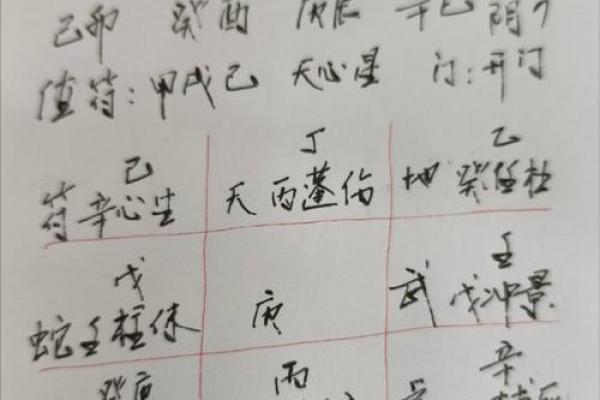 己卯 癸酉 庚辰 辛巳 阴
值符：甲戌己 天心星 门：开门
己 丁 乙
符辛心生 天丙蓬伤 地癸任杜
戊 壬
蛇壬柱休 庚 武戊冲景
丙 辛
癸庚